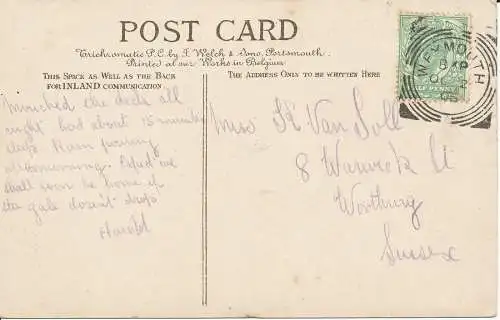 POST CARD
Trichromatic P.C. by F. Welch & Sons, Portsmouth.
Printed at our Works in Belgium
THIS SPACE AS WELL AS THE BACK
FOR INLAND COMMUNICATION
THE ADDRESS ONLY TO BE WRITTEN HERE
WEYMOUTH
the deck all
night had about 15 minutes
sleep Rain pouring
all morning. Expect we
shall soon be home if
the gale doesn't drop
Harold
Miss K Van
8 Warwick St
Worthing
Sussex